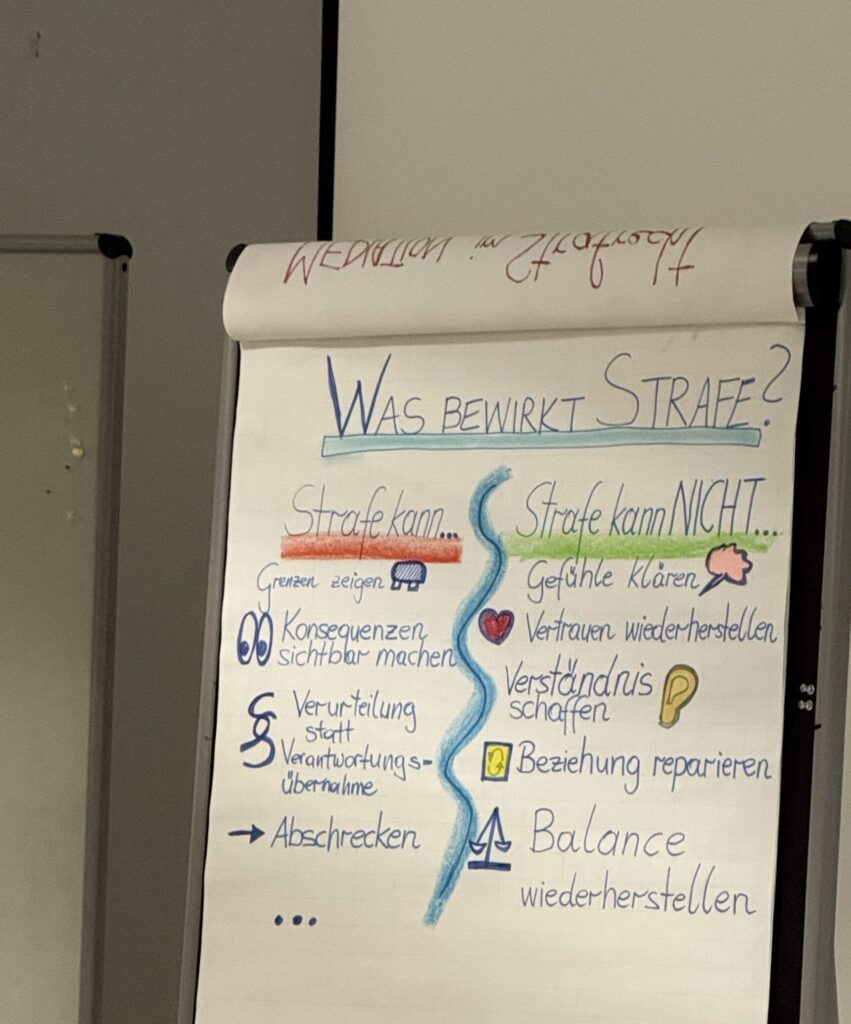 MEDIATION im
WAS BEWIRKT STRAFE?
Strafe kann...
Grenzen zeigen
Konsequenzen
sichtbar machen
§ Verurteilung
statt
Verantwortungs-
übernahme
→ Abschrecken
...
Strafe kann NICHT...
Gefühle klären
Vertrauen wiederherstellen
Verständnis
schaffen
Beziehung reparieren
Balance
wiederherstellen